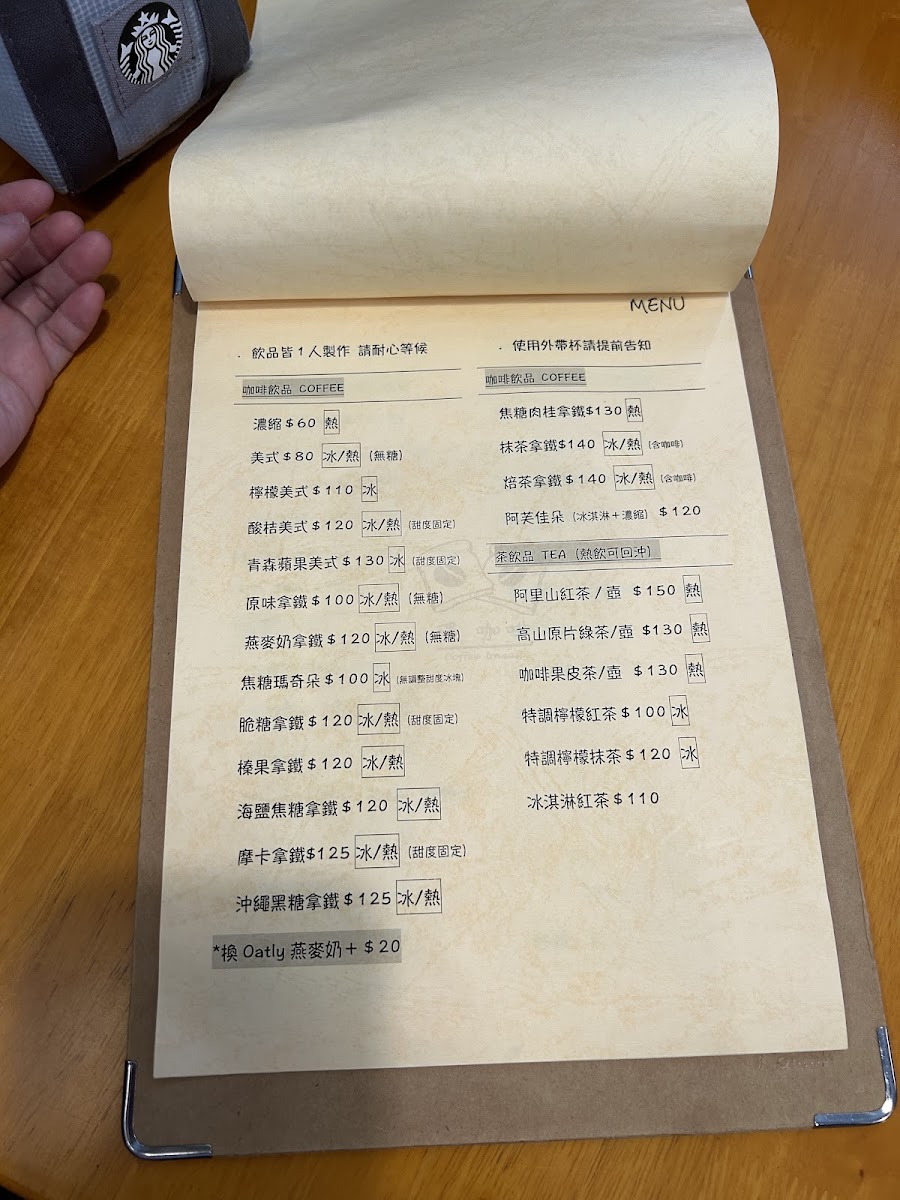 MENU
. 飲品皆1人製作 請耐心等候
咖啡飲品 COFFEE
濃縮$60 熱
美式$80 冰/熱 (無糖)
檸檬美式$110 冰
酸桔美式$120 冰/熱 (甜度固定)
青森蘋果美式$130 冰 (甜度固定)
原味拿鐵$100 冰/熱 (無糖)
燕麥奶拿鐵$120 冰/熱 (無糖)
焦糖瑪奇朵$100 冰 (無調整甜度冰塊)
脆糖拿鐵$120 冰/熱 (甜度固定)
榛果拿鐵$120 冰/熱
海鹽焦糖拿鐵$120 冰/熱
摩卡拿鐵$125 冰/熱 (甜度固定)
沖繩黑糖拿鐵$125 冰/熱
*換 Oatly 燕麥奶+$20
. 使用外帶杯請提前告知
咖啡飲品 COFFEE
焦糖肉桂拿鐵$130 熱
抹茶拿鐵$140 冰/熱 (含咖啡)
焙茶拿鐵$140 冰/熱 (含咖啡)
阿芙佳朵 (冰淇淋+濃縮) $120
茶飲品 TEA (熱飲可回沖)
阿里山紅茶/壺 $150 熱
高山原片綠茶/壺 $130 熱
咖啡果皮茶/壺 $130 熱
特調檸檬紅茶$100 冰
特調檸檬抹茶$120 冰
冰淇淋紅茶$110